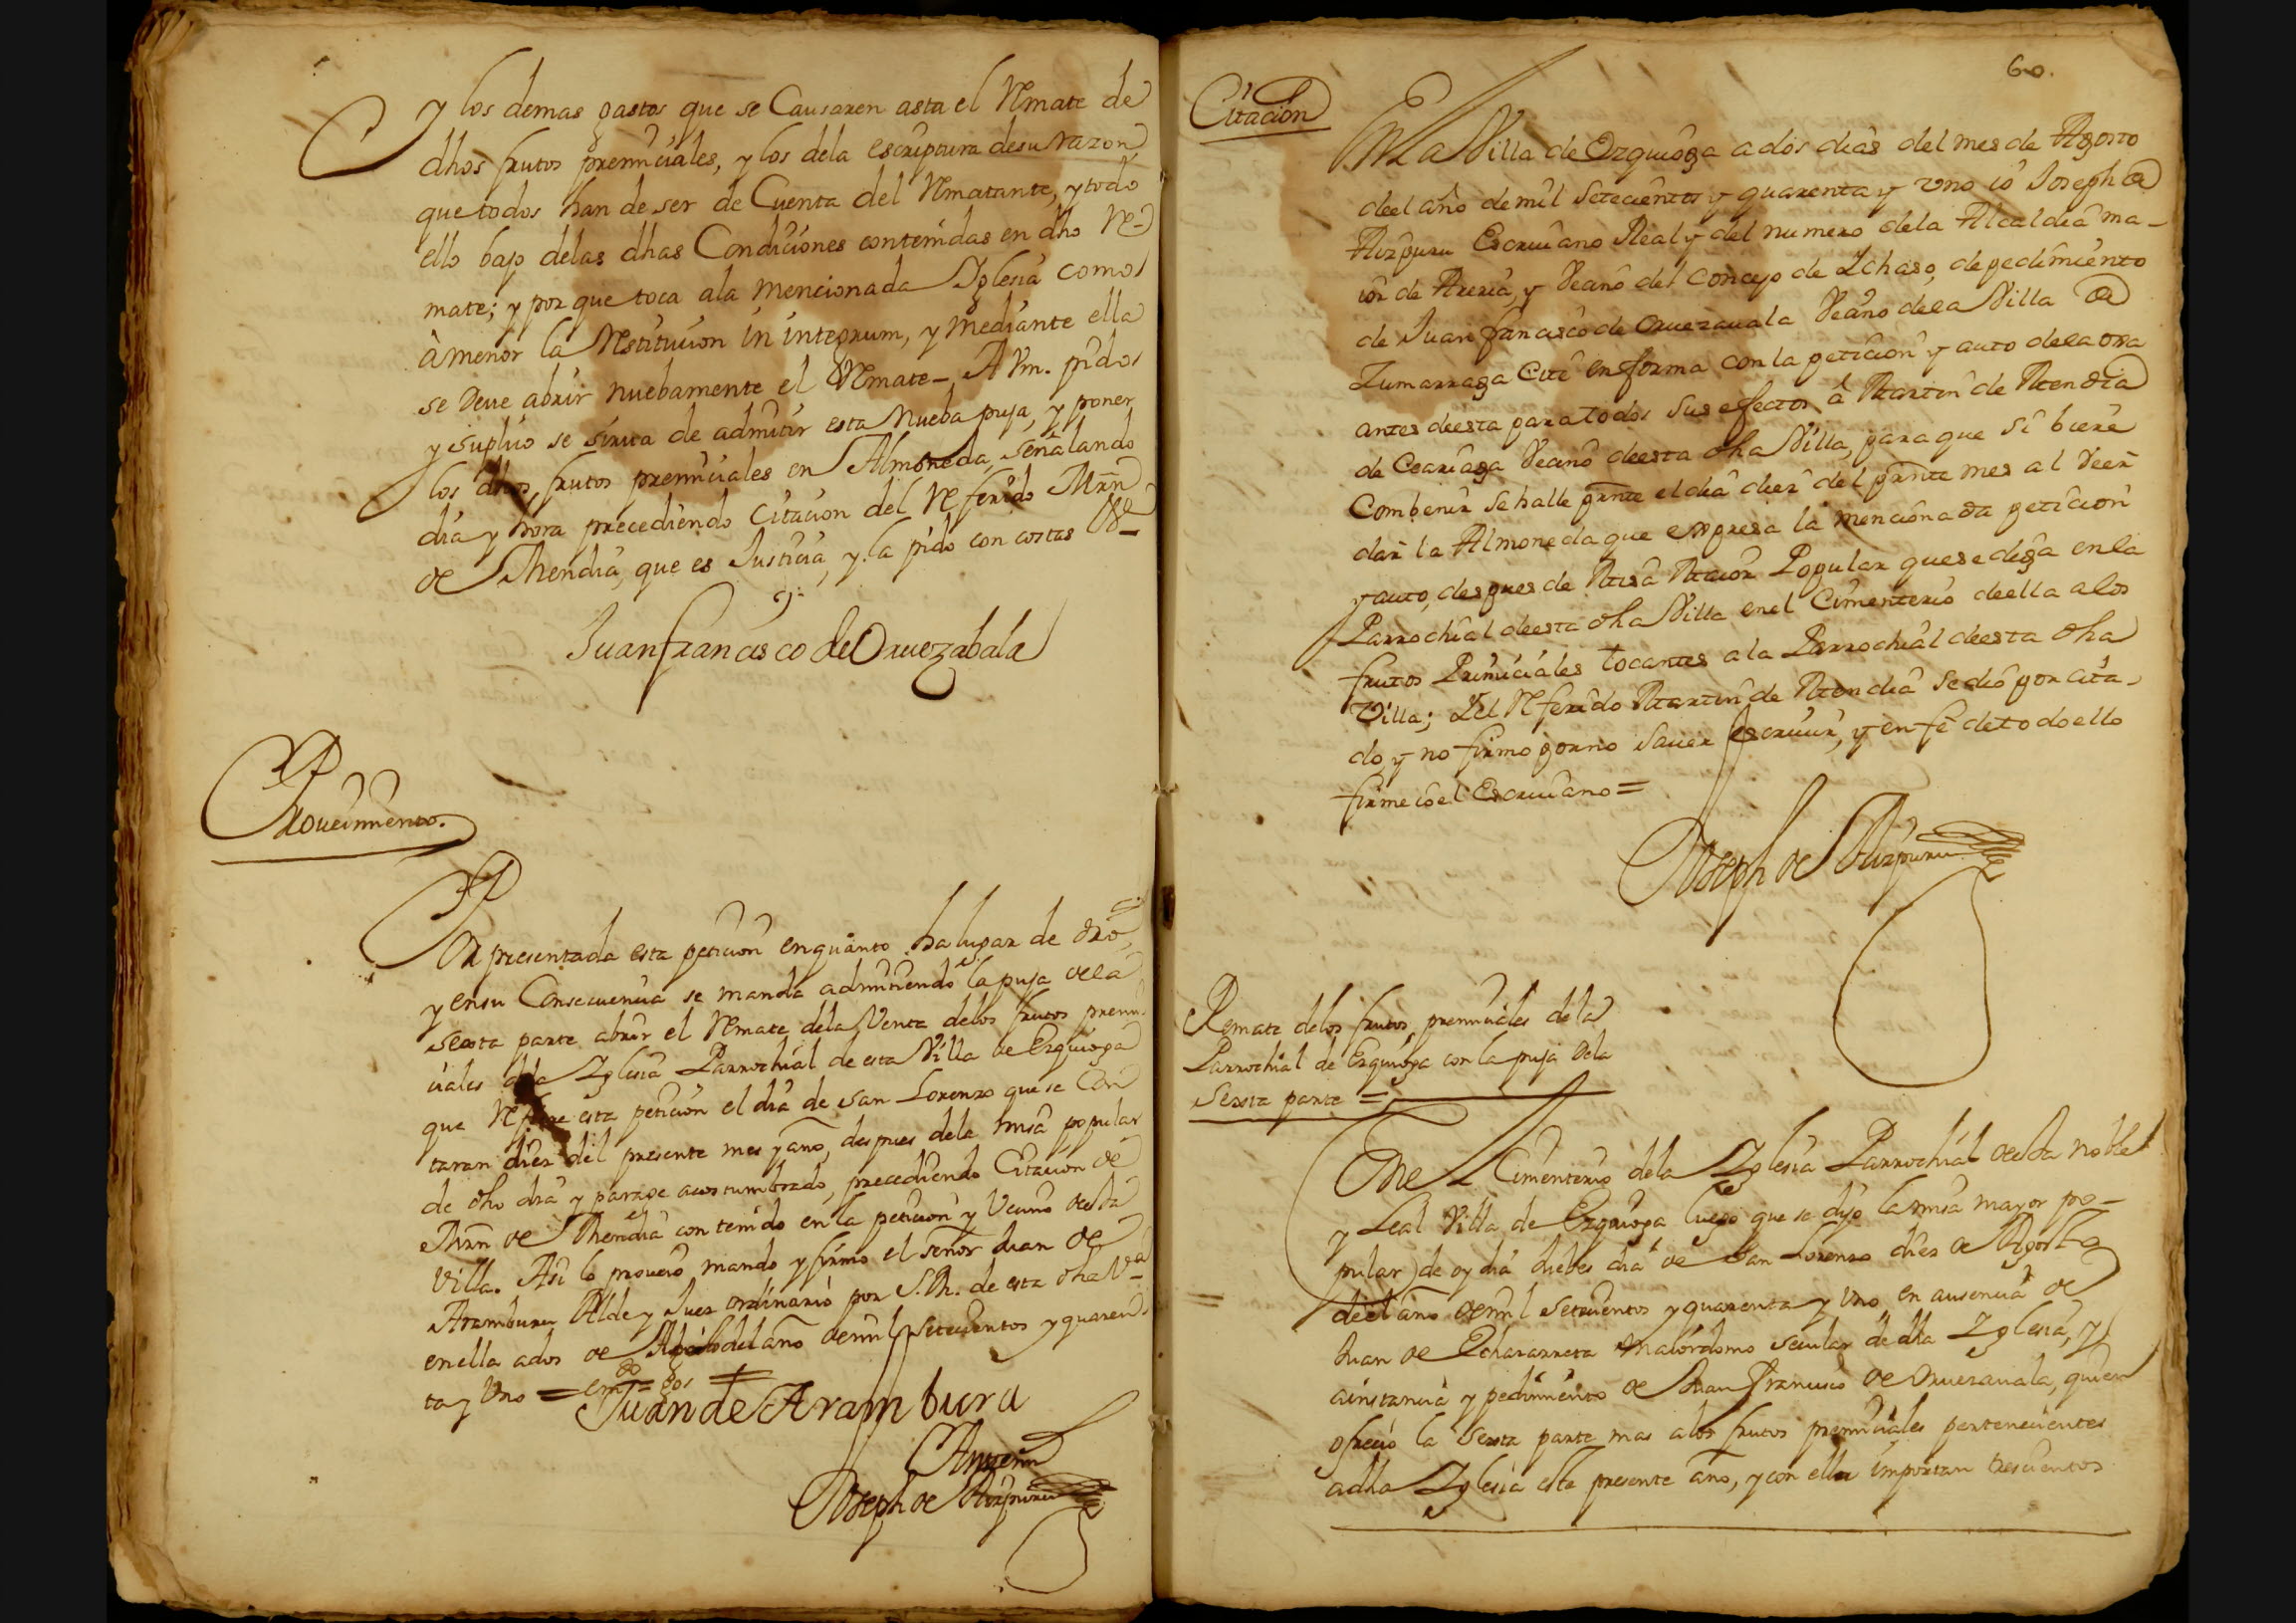 y los demas gastos que se Causaren asta el Remate de
dhos frutos premiciales, y los dela escriptura desu razon
que todos han de ser de Cuenta del Rematante, y todo
ello bajo delas dhas Condiciones contenidas en dho Re-
mate; y por que toca ala mencionada Iglesia como
à menor la Restitucion in integrum, y mediante ella
se deve abrir nuebamente el Remate- A Vm. pido
y suplico se sirva de admitir esta nueba puja, y poner
los dhos frutos premiciales en Almoneda, señalando
dia y hora precediendo Citacion del Referido Mrñ
de Mendia, que es Justicia, y la pido con costas &
Juan francisco de Oruezabala
Proveimiento.
Por presentada esta peticion en quanto ha lugar de dro,
y ensu Consecuencia se manda admitiendo la puja dela
sexta parte abrir el Remate dela Venta delos frutos premi-
ciales dela Iglesia Parrochial de esta Villa de Ezquioga
que Refiere esta peticion el dia de san Lorenzo que se Con
taran diez del presente mes y año, despues dela misa popular
de dho dia y paraje acostumbrado, precediendo Citacion de
Mrñ de Mendia contenido en la peticion y Vecino desta
Villa. Asi lo proveio mando y firmo el señor Juan de
Aramburu Alde y Juez ordinario por S.M. de esta dha Vª
enella a dos de Agosto del año de mil setecientos y quaren-
ta y Uno = emdo = gos =
Juan de Aramburu
Ante mi
Joseph de Aizpuru
60.
Citacion
En la Villa de Ezquioga a dos dias del mes de Agosto
deel año de mil setecientos y quarenta y uno io Joseph de
Aizpuru Escrivano Real y del numero dela Alcaldia ma-
ior de Areria, y Vecino del Concejo de Ichaso, de pedimiento
de Juan francisco de Oruezavala Vecino de la Villa de
Zumarraga Cite en forma con la peticion y auto de la otra
antes deesta para todos sus efectos à Martin de Mendia
de Ceariaga Vecino deesta dha Villa, para que si biere
Combenir se halle pante el dia diez del pante mes al veer
dar la Almoneda que expresa la mencionada peticion
y auto, despues de Misa Maior Popular que se diga en la
Parrochial deesta dha Villa en el Cimenterio deella a los
frutos Primiciales tocantes a la Parrochial deesta dha
Villa; Y el Referido Martin de Mendia se dio por cita-
do, y no firmo por no saver Escrivir, y en fe de todo ello
firme io el Escrivano =
Joseph de Aizpuru
Remate delos frutos premiciales dela
Parrochial de Ezquioga con la puja dela
Sexta parte =
En el Cimenterio dela Iglesia Parrochial de esta Noble
y Leal Villa de Ezquioga luego que se dijo la misa mayor po-
pular de oy dia Juebes dia de San Lorenzo diez de Agosto
deel año de mil setecientos y quarenta y Uno, en ausencia de
Juan de Echavarreta Maiordomo secular de dha Iglesia, y
a instancia y pedimiento de Juan Francisco de Oruezavala, quien
ofrecio la Sexta parte mas a los frutos premiciales pertenecientes
a dha Iglesia este presente año, y con ella importan trescientos